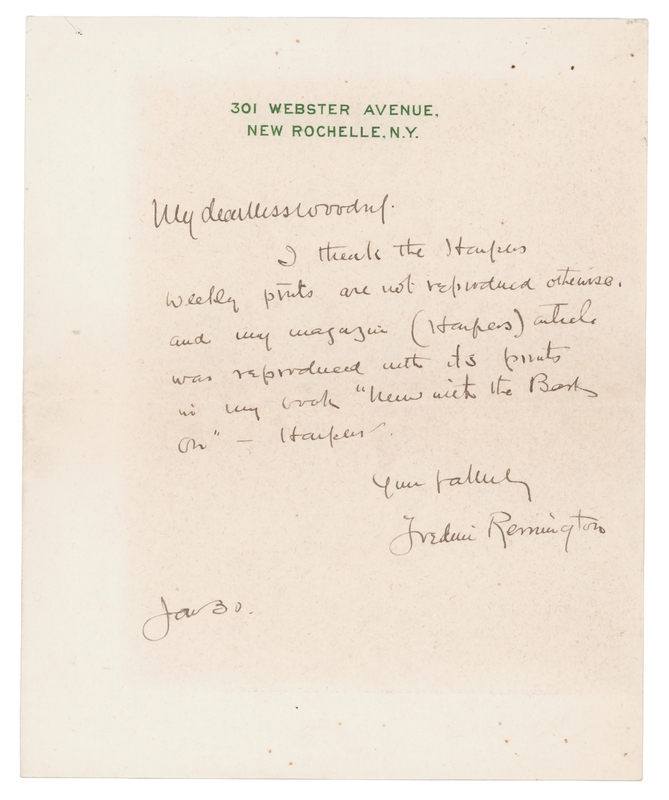 301 WEBSTER AVENUE,
NEW ROCHELLE, N.Y.
My dear Miss Woodruf.
I think the Harpers
Weekly prints are not reproduced otherwise.
and my magazin (Harpers) article
was reproduced with its prints
in my book "Men with the Bark
On" — Harpers.
Yours faithfully
Frederic Remington
Jan 30.